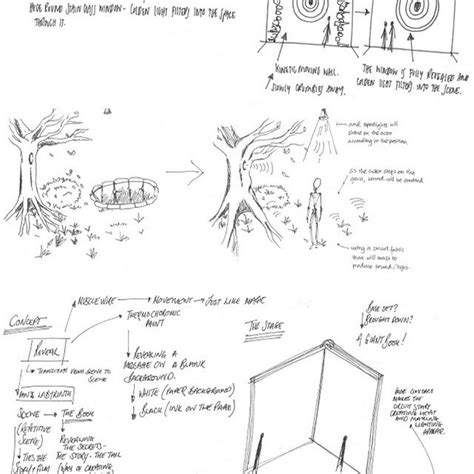 HUGE ROUND STAIN GLASS WINDOW - GOLDEN LIGHT FILTERS INTO THE SPACE
THROUGH IT.
KINETIC MOVING WALL.
SLOWLY CRUMBLES AWAY.
THE WINDOW IS FULLY REVEALED AND
GOLDEN LIGHT FILTERS INTO THE SCENE.
and spotlights will
shine on the actor
according to the position.
as the actor steps on the
sound will be emitted.
using a smart fabric
that will react to
produce sound/light.
CONCEPT
REVEAL
TRANSITION FROM SCENE TO
SCENE
LABYRINTH
SCENE
THE BOOK
(REPETITIVE
SCENE)
REVEALING
THE SECRETS IN
THE STORY - THE TAIL
STORY/FILM
(WAY OF CREATING
MUSCLE WIRE
MOVEMENT
JUST LIKE MAGIC
THERMOCHROMIC
PAINT
REVEALING A
MESSAGE ON A BLANK
BACKGROUND.
WHITE (PAPER BACKGROUND)
BLACK (INK ON THE PAGE)
THE STAGE
BASE SET?
BROUGHT DOWN?
A GIANT BOOK!
MAKES THE
CIRCUIT START
CREATING HEAT
AND MAKING
APPEAR.